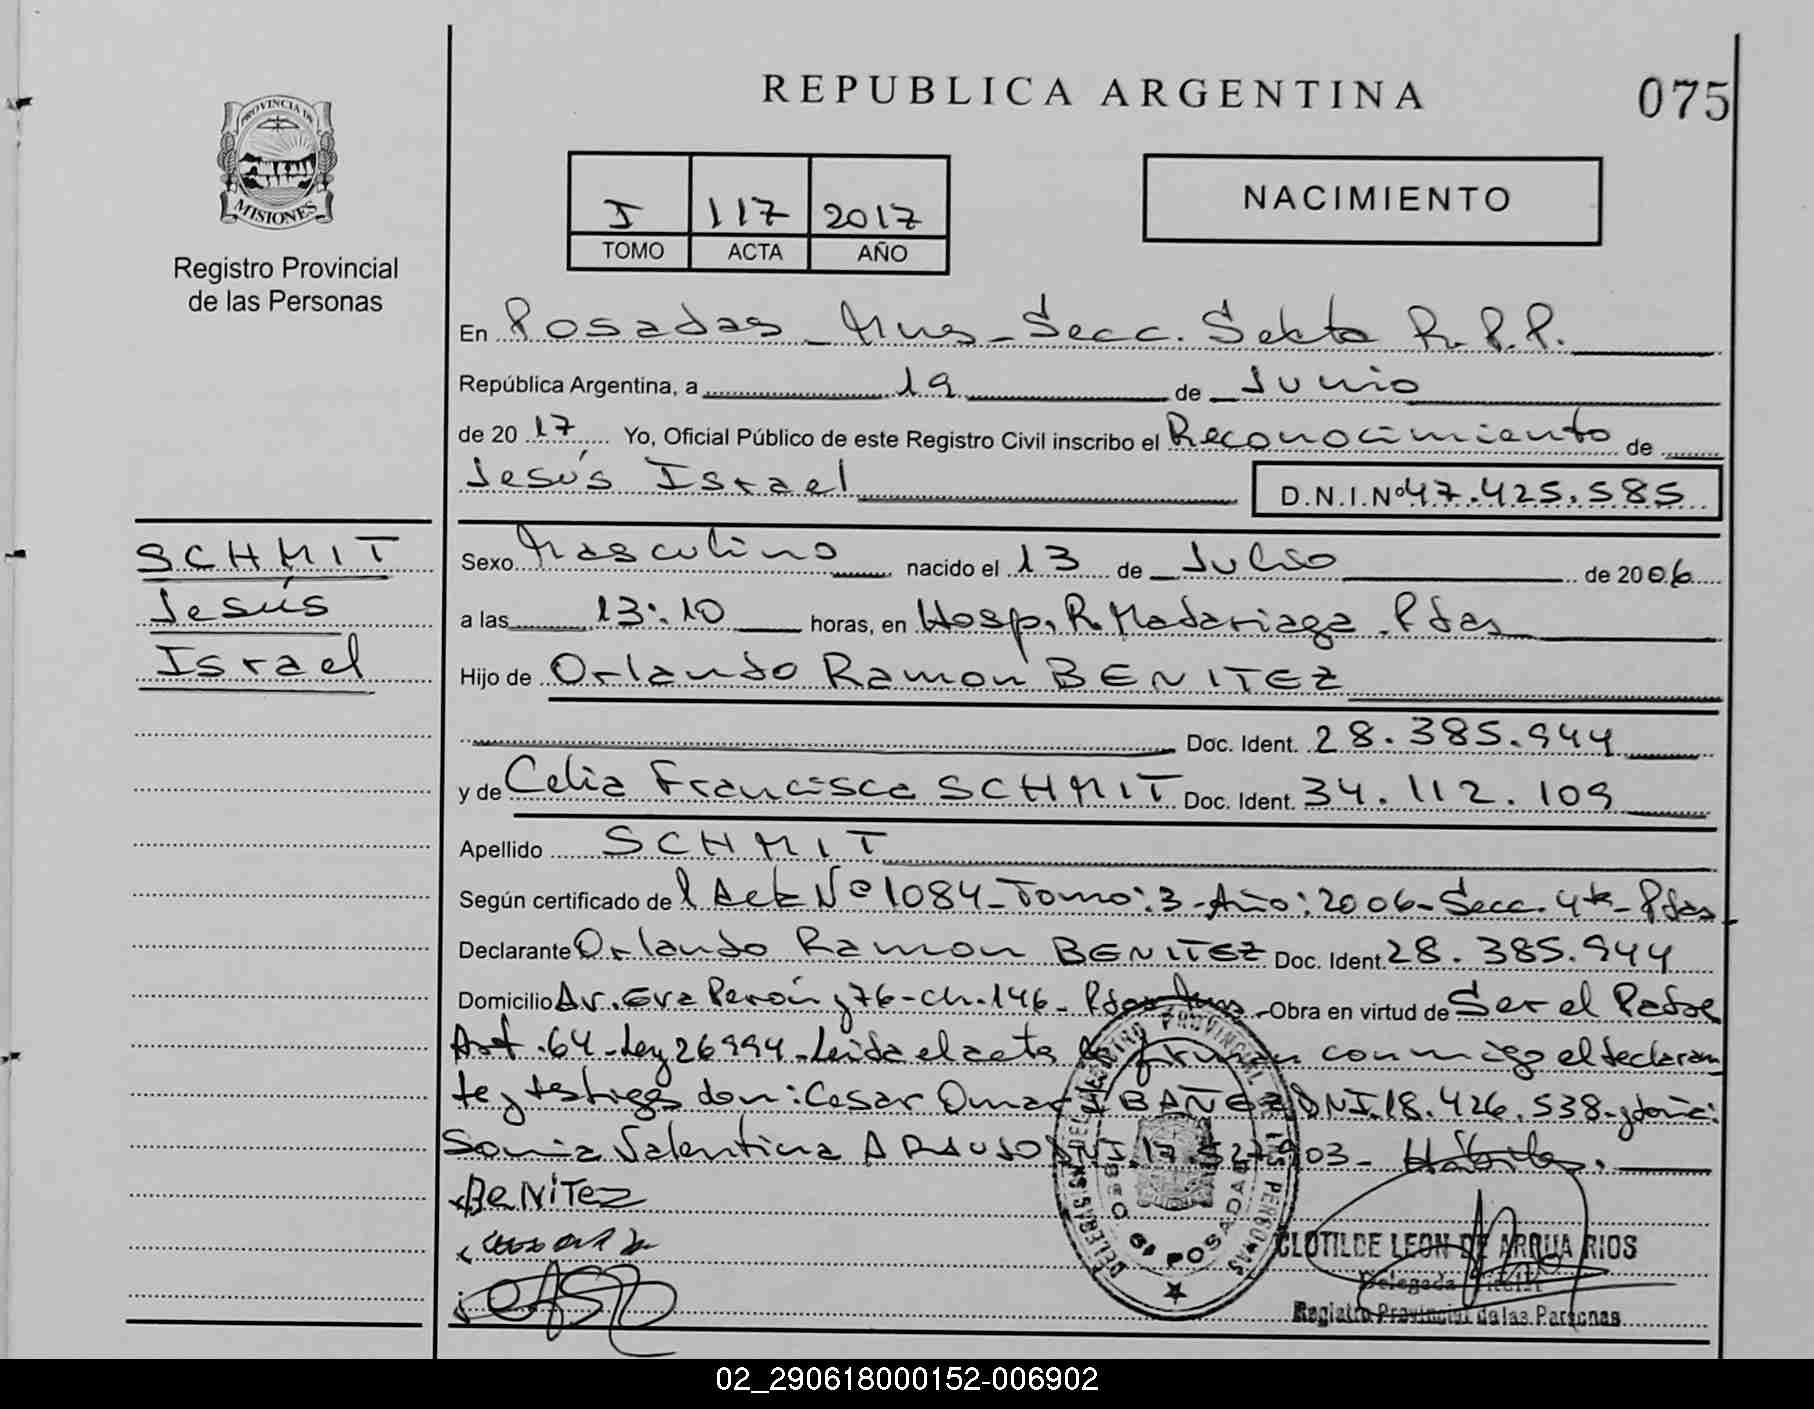 REPUBLICA ARGENTINA
075
PROVINCIA DE
MISIONES
Registro Provincial
de las Personas
I 117 2017
TOMO ACTA AÑO
NACIMIENTO
En Posadas - Mnes - Secc. Sexta R.P.P.
República Argentina, a 19 de Junio
de 2017 Yo, Oficial Público de este Registro Civil inscribo el Reconocimiento de
Jesús Israel D.N.I.Nº 47.425.585
SCHMIT
Jesús
Israel
Sexo Masculino nacido el 13 de Julio de 2006
a las 13:10 horas, en Hosp. R. Madariaga. Pdas
Hijo de Orlando Ramon BENITEZ
Doc. Ident. 28.385.944
y de Celia Francisca SCHMIT Doc. Ident. 34.112.109
Apellido SCHMIT
Según certificado de l Acta Nº 1084 - Tomo: 3 - Año: 2006 - Secc. 4ta - Pdas.
Declarante Orlando Ramon BENITEZ Doc. Ident. 28.385.944
Domicilio Av. Eva Perón y 76 - ch. 146 - Pdas Mnes - Obra en virtud de Ser el Padre
Art. 64 - Ley 26994 - Leida el acta firman conmigo el declaran
te y testigos don: Cesar Omar IBAÑEZ DNI. 18.426.538 - y doña:
Sonia Valentina ARAUJO DNI. 17.527.903 - Hábiles.
BENITEZ
DELEGACION DEL REGISTRO PROVINCIAL DE LAS PERSONAS
POSADAS
CLOTILDE LEON DE ARRUA RIOS
Delegada Titular
Registro Provincial de las Personas
02_290618000152-006902